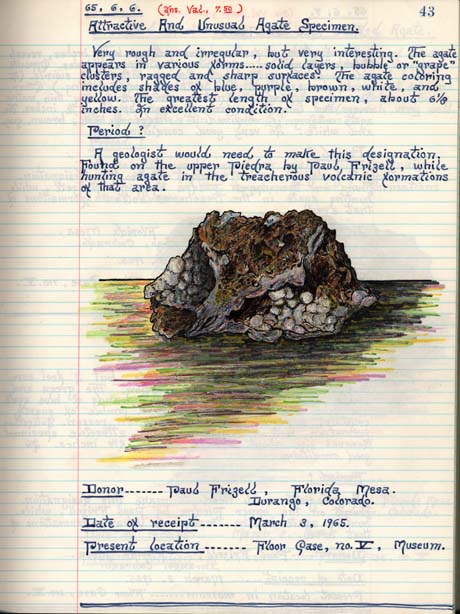 65. 6. 6. (Ins. Val., 7.50) 43
Attractive And Unusual Agate Specimen.
Very rough and irregular, but very interesting. The agate
appears in various forms.....solid layers, bubble or "grape"
clusters, ragged and sharp surfaces. The agate coloring
includes shades of blue, purple, brown, white, and
yellow. The greatest length of specimen, about 6 1/2
inches. In excellent condition.
Period ?
A geologist would need to make this designation.
Found on the upper Piedra by Paul Frizell, while
hunting agate in the treacherous volcanic formations
of that area.
Donor ------- Paul Frizell, Florida Mesa.
Durango, Colorado.
Date of receipt ------- March 3, 1965.
Present location ------- Floor Case, no. V, Museum.